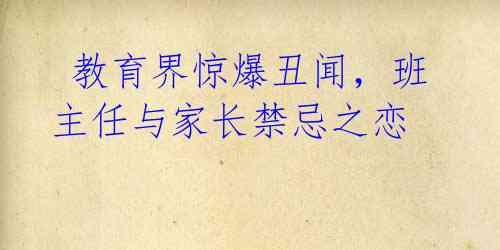 教育界惊爆丑闻，班
主任与家长禁忌之恋